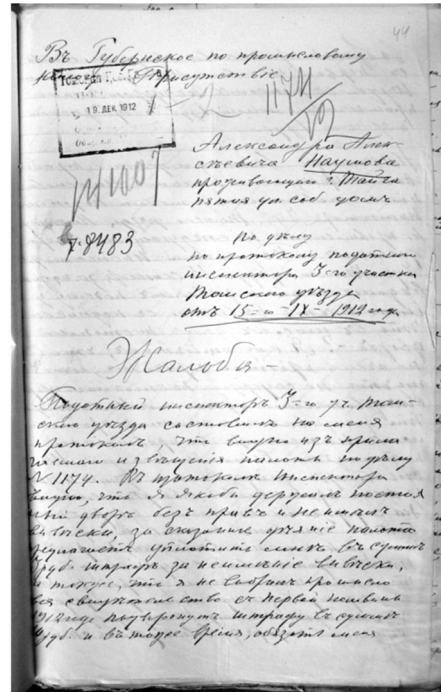 44
Въ Губернское по промысловому
налогу Присутствіе
19 ДЕК 1912
1174
141007
8483
Александра Алек-
сѣевича Наумова
проживающаго г. Тайга
пятая ул. соб. домъ
По дѣлу
по протоколу податного
инспектора 3-го участка
Томскаго уѣзда
отъ 15-го - IX - 1912 года
Жалоба -
Податный инспекторъ 3-го уч. Том-
скаго уѣзда составилъ на меня
протоколъ, что видно изъ
извѣщенія палаты по дѣлу
№ 1174. Въ протоколѣ инспектора
видно, что я якобы держалъ постоя-
лый дворъ безъ правъ и не имѣлъ
вывѣски, за
уплатить въ суммѣ
руб. штрафъ за неимѣніе вывѣски,
и что я не выбралъ промысло-
вое свидѣтельство съ первой
1912 года штрафу въ суммѣ
руб. и въ тоже время, обязать меня